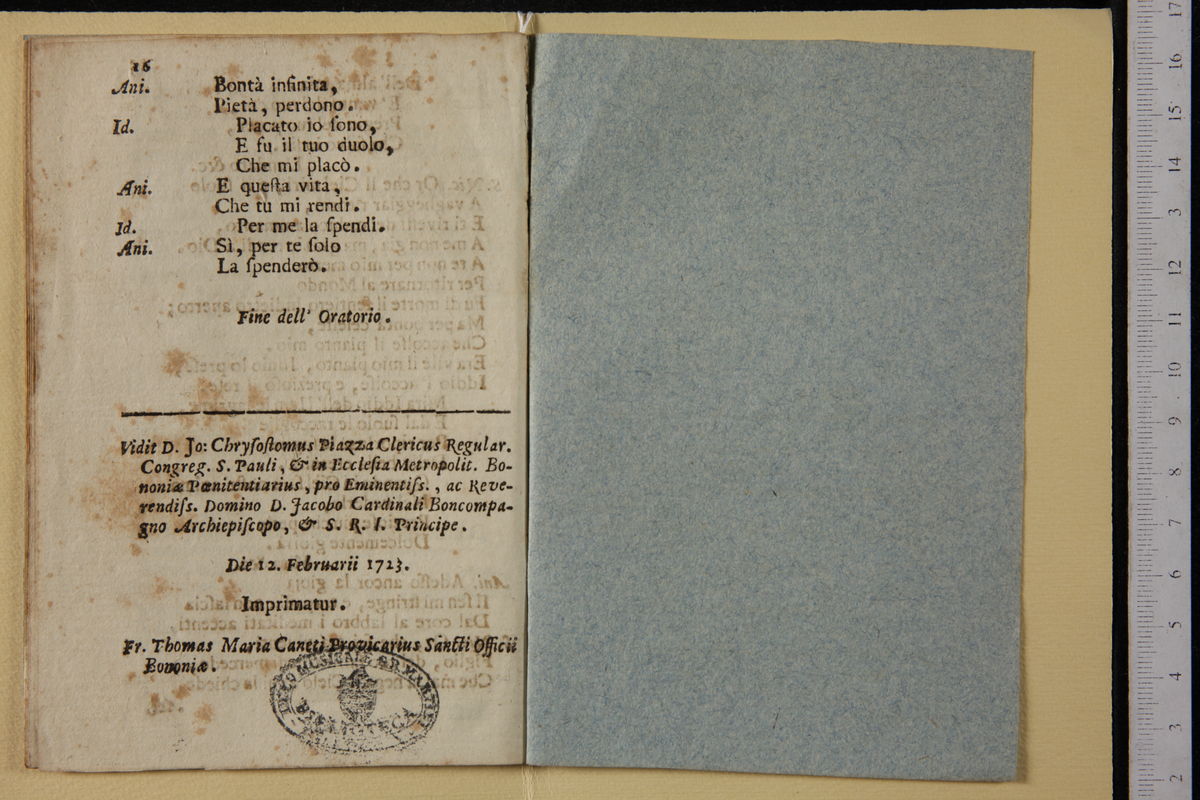 16
Ani. Bontà infinita,
Pietà, perdono.
Id. Placato io ſono,
E fu il tuo duolo,
Che mi placò.
Ani. E queſta vita,
Che tu mi rendi.
Id. Per me la ſpendi.
Ani. Sì, per te ſolo
La ſpenderò.
Fine dell' Oratorio.
Vidit D. Jo: Chryſoſtomus Piazza Clericus Regular.
Congreg. S. Pauli, & in Eccleſia Metropolit. Bo-
noniæ Pœnitentiarius, pro Eminentiſs., ac Reve-
rendiſs. Domino D. Jacobo Cardinali Boncompa-
gno Archiepiſcopo, & S. R. I. Principe.
Die 12. Februarii 1723.
Imprimatur.
Fr. Thomas Maria Caneti Provicarius Sancti Officii
Bononiæ.
LICEO MUSICALE G.B. MARTINI
BIBLIOTECA
17
16
15
14
3
12
11
10
9
8
7
6
5
4
3
2